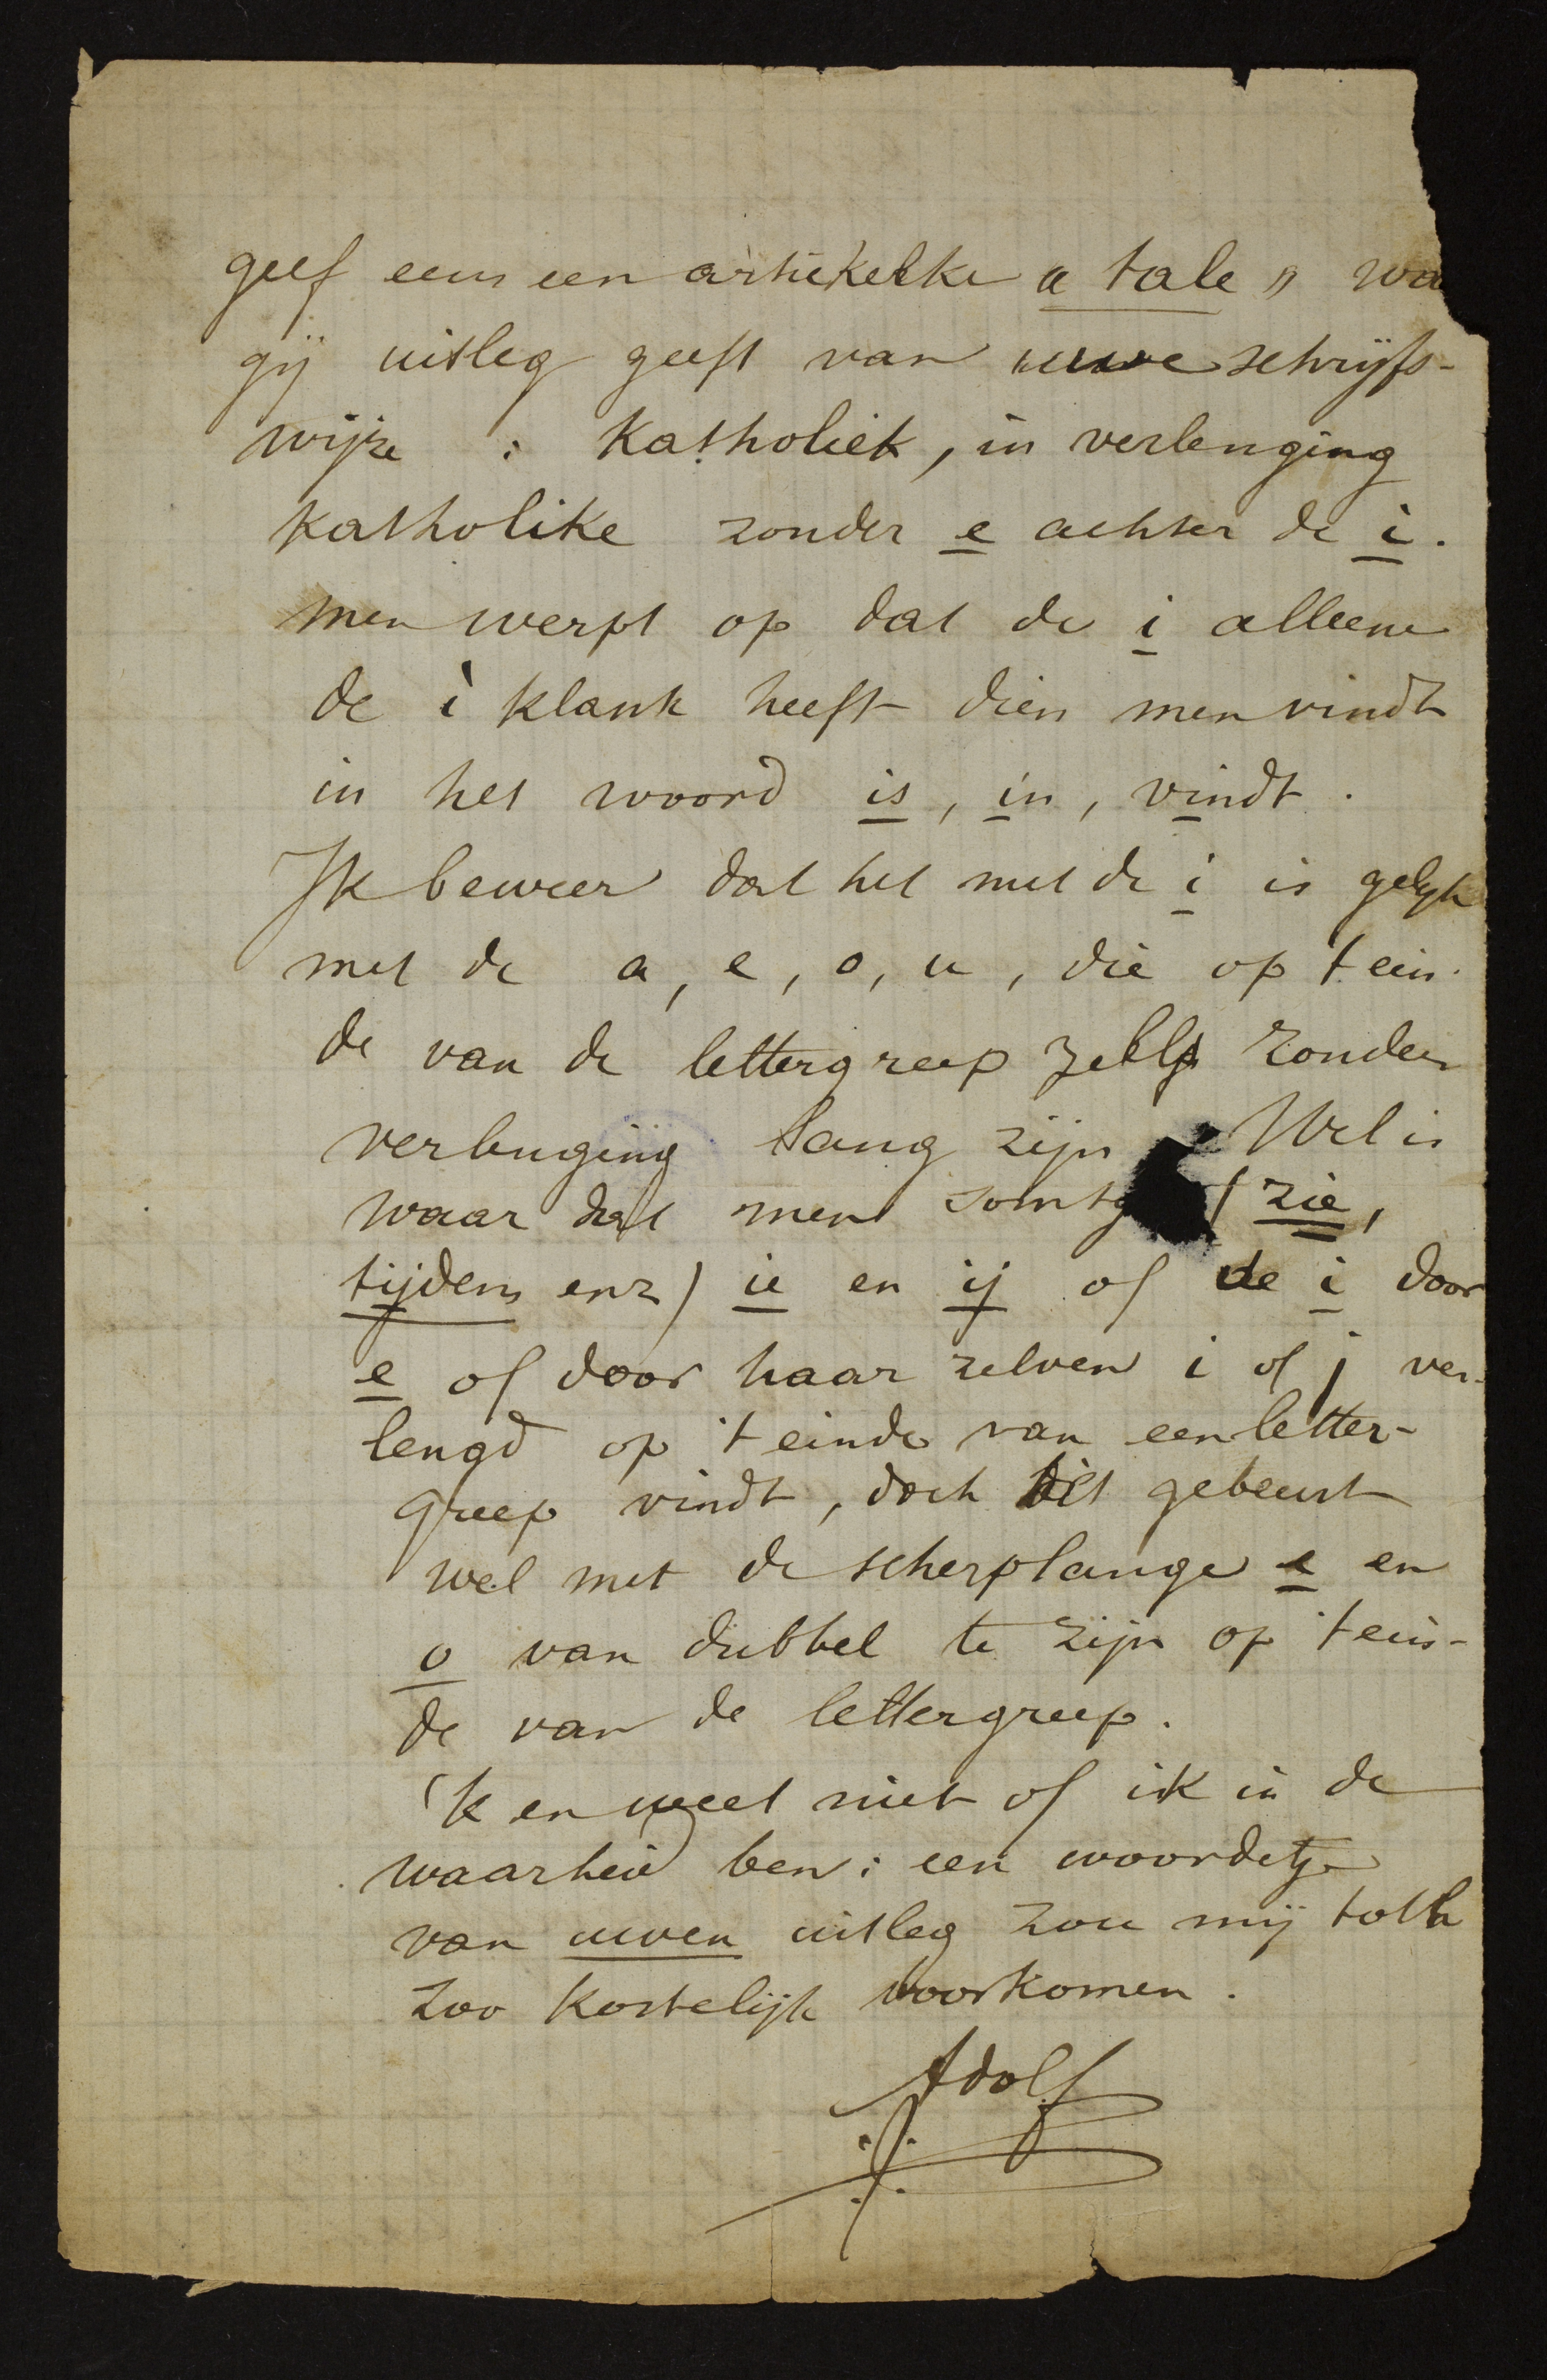 geef eens een artikelke « tale » wa
gij uitleg geeft van uwe schrijfs-
wijze : Katholiek, in verlenging
Katholike zonder e achter de i.
men werpt op dat de i alleene
de i klank heeft dien men vindt
in het woord is, in, vindt.
Ik beweer dat het met de i is gelijk
met de a, e, o, u, die op 't ein-
de van de lettergreep zelfs zonder
verbuging lang zijn Wel is
waar dat men somtij (zie,
tijdens enz) ie en ij of de i door
e of door haar zelven i of j ver-
lengd op 't einde van een letter-
greep vindt, doch dit gebeurt
wel met de scherplange e en
o van dubbel te zijn op 't ein-
de van de lettergreep.
'k en weet niet of ik in de
waarheid ben: een woordetje
van uwen uitleg zou mij toch
zoo kostelijk voorkomen.
Adolf